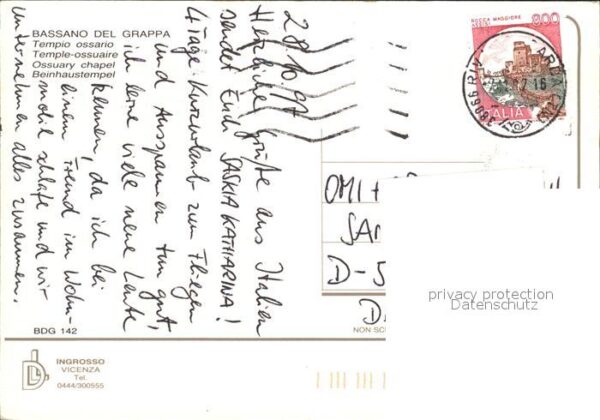 BASSANO DEL GRAPPA
Tempio ossario
Temple-ossuaire
Ossuary chapel
Beinhaustempel
28.10.97
Herzliche Grüße aus Italien
sendet Euch SASKIA KATHARINA!
4 Tage Kurzurlaub zum Fliegen
und Ausspannen tun gut,
ich lerne viele neue Leute
kennen, da ich bei
einem Freund im Wohn-
mobil schlafe und wir
unternehmen alles zusammen.
BDG 142
INGROSSO
VICENZA
Tel.
0444/300555
ROCCA MAGGIORE
ASSISI
800
ITALIA
OMI +
D-5
NON SC
privacy protection
Datenschutz